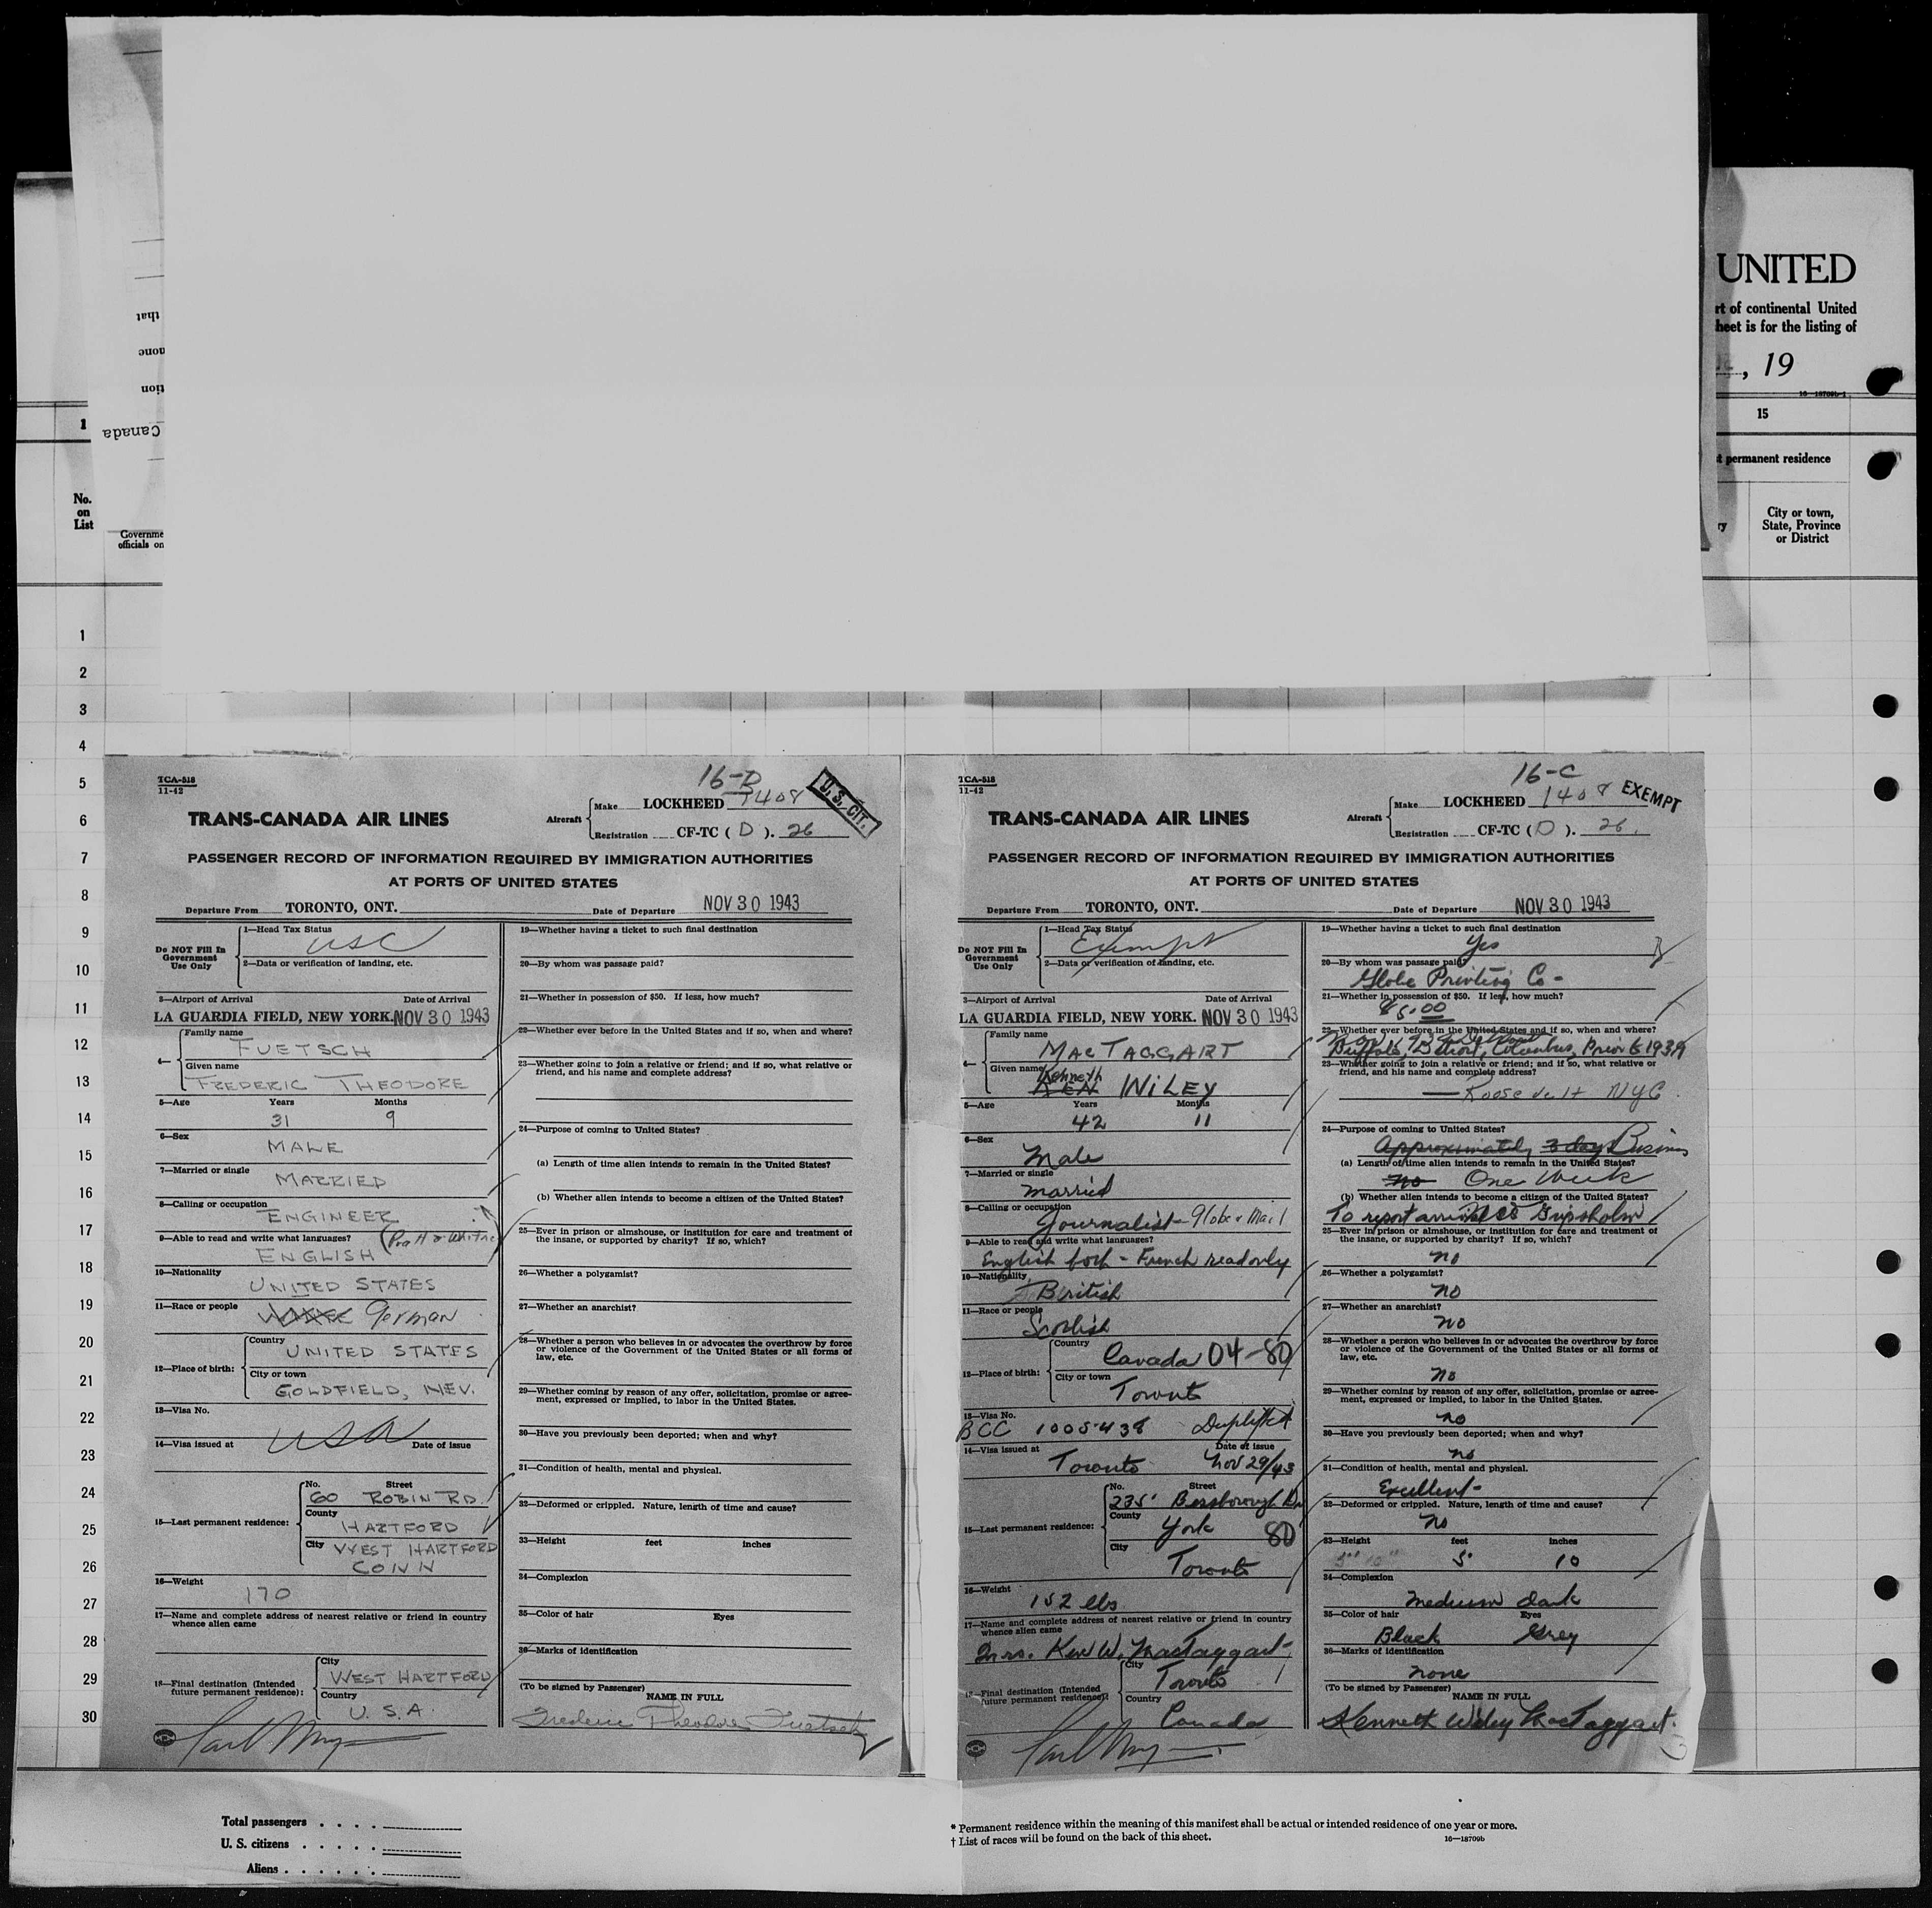 UNITED
rt of continental United
heet is for the listing of
, 19
16—18709b-1
15
t permanent residence
City or town,
State, Province
or District
ry
that
none
tion
Canada
1
No.
on
List
Governme
officials on
1
2
3
4
5
6
7
8
9
10
11
12
13
14
15
16
17
18
19
20
21
22
23
24
25
26
27
28
29
30
TCA-518
11-42
16-D
U. S. CIT.
TRANS-CANADA AIR LINES
Aircraft
Make LOCKHEED 1408
Registration CF-TC (D). 26
PASSENGER RECORD OF INFORMATION REQUIRED BY IMMIGRATION AUTHORITIES
AT PORTS OF UNITED STATES
Departure From TORONTO, ONT. Date of Departure NOV 30 1943
Do NOT Fill In
Government
Use Only
1—Head Tax Status
USC
2—Data or verification of landing, etc.
3—Airport of Arrival Date of Arrival
LA GUARDIA FIELD, NEW YORK. NOV 30 1943
4—
Family name
FUETSCH
Given name
FREDERIC THEODORE
5—Age Years Months
31 9
6—Sex
MALE
7—Married or single
MARRIED
8—Calling or occupation
ENGINEER
9—Able to read and write what languages? (Pratt & Whitney)
ENGLISH
10—Nationality
UNITED STATES
11—Race or people
German
12—Place of birth:
Country
UNITED STATES
City or town
GOLDFIELD, NEV.
13—Visa No.
USA
14—Visa issued at Date of issue
15—Last permanent residence:
No. Street
60 ROBIN RD.
County
HARTFORD
City WEST HARTFORD
CONN
16—Weight
170
17—Name and complete address of nearest relative or friend in country
whence alien came
18—Final destination (Intended
future permanent residence):
City
WEST HARTFORD
Country
U.S.A.
19—Whether having a ticket to such final destination
20—By whom was passage paid?
21—Whether in possession of $50. If less, how much?
22—Whether ever before in the United States and if so, when and where?
23—Whether going to join a relative or friend; and if so, what relative or
friend, and his name and complete address?
24—Purpose of coming to United States?
(a) Length of time alien intends to remain in the United States?
(b) Whether alien intends to become a citizen of the United States?
25—Ever in prison or almshouse, or institution for care and treatment of
the insane, or supported by charity? If so, which?
26—Whether a polygamist?
27—Whether an anarchist?
28—Whether a person who believes in or advocates the overthrow by force
or violence of the Government of the United States or all forms of
law, etc.
29—Whether coming by reason of any offer, solicitation, promise or agree-
ment, expressed or implied, to labor in the United States.
30—Have you previously been deported; when and why?
31—Condition of health, mental and physical.
32—Deformed or crippled. Nature, length of time and cause?
33—Height feet inches
34—Complexion
35—Color of hair Eyes
36—Marks of identification
(To be signed by Passenger)
NAME IN FULL
Frederic Theodore Fuetsch
TCA-518
11-42
16-C
EXEMPT
TRANS-CANADA AIR LINES
Aircraft
Make LOCKHEED 1408
Registration CF-TC (D). 26.
PASSENGER RECORD OF INFORMATION REQUIRED BY IMMIGRATION AUTHORITIES
AT PORTS OF UNITED STATES
Departure From TORONTO, ONT. Date of Departure NOV 30 1943
Do NOT Fill In
Government
Use Only
1—Head Tax Status
Exempt
2—Data or verification of landing, etc.
3—Airport of Arrival Date of Arrival
LA GUARDIA FIELD, NEW YORK. NOV 30 1943
4—
Family name
MACTAGGART
Given name Kenneth
KEN WILEY
5—Age Years Months
42 11
6—Sex
Male
7—Married or single
Married
8—Calling or occupation
Journalist - Globe & Mail
9—Able to read and write what languages?
English both - French read only
10—Nationality
British
11—Race or people
Scottish
12—Place of birth:
Country
Canada 04-80
City or town
Toronto
13—Visa No.
BCC 1005438
14—Visa issued at Date of issue
Toronto Nov 29/43
15—Last permanent residence:
No. Street
235 Bessborough Dr
County
York 80
City
Toronto
16—Weight
152 lbs
17—Name and complete address of nearest relative or friend in country
whence alien came
Mrs. Ken W. MacTaggart
18—Final destination (Intended
future permanent residence):
City
Toronto
Country
Canada
19—Whether having a ticket to such final destination
Yes
20—By whom was passage paid?
Globe Printing Co -
21—Whether in possession of $50. If less, how much?
22—Whether ever before in the United States and if so, when and where?
Buffalo, Detroit, Columbus, Prior to 1939
23—Whether going to join a relative or friend; and if so, what relative or
friend, and his name and complete address?
— Roosevelt NYC
24—Purpose of coming to United States?
Approximately 3 days Business
(a) Length of time alien intends to remain in the United States?
no One Week
(b) Whether alien intends to become a citizen of the United States?
To report arrival SS Gripsholm
25—Ever in prison or almshouse, or institution for care and treatment of
the insane, or supported by charity? If so, which?
no
26—Whether a polygamist?
no
27—Whether an anarchist?
no
28—Whether a person who believes in or advocates the overthrow by force
or violence of the Government of the United States or all forms of
law, etc.
no
29—Whether coming by reason of any offer, solicitation, promise or agree-
ment, expressed or implied, to labor in the United States.
no
30—Have you previously been deported; when and why?
no
31—Condition of health, mental and physical.
Excellent -
32—Deformed or crippled. Nature, length of time and cause?
no
33—Height feet inches
5' 10" 5' 10
34—Complexion
Medium dark
35—Color of hair Eyes
Black Grey
36—Marks of identification
none
(To be signed by Passenger)
NAME IN FULL
Kenneth Wiley MacTaggart.
Total passengers . . . .
U. S. citizens . . . . .
Aliens . . . . . .
* Permanent residence within the meaning of this manifest shall be actual or intended residence of one year or more.
† List of races will be found on the back of this sheet.
16—18709b